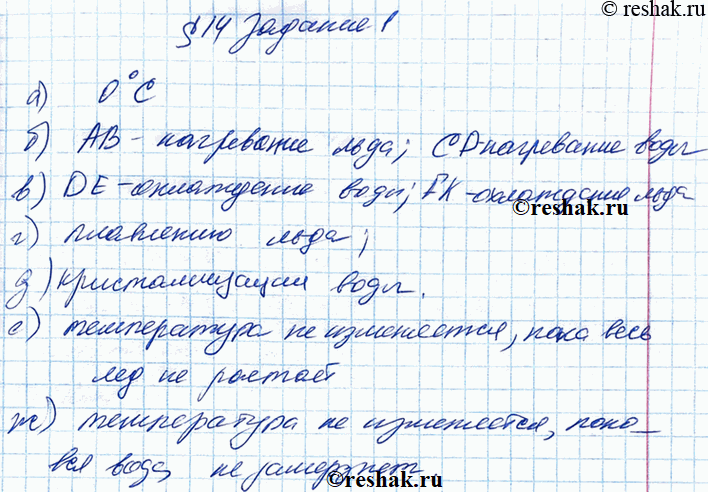 §14 Задание 1
а) 0°С
б) АВ - нагревание льда; CD-нагревание воды
в) DE-охлаждение воды; FK-охлаждение льда
©reshak.ru
г) плавлению льда;
д) кристаллизации воды.
е) температура не изменяется, пока весь
лед не растает
ж) температура не изменяется, пока
вся вода не замерзнет
©reshak.ru